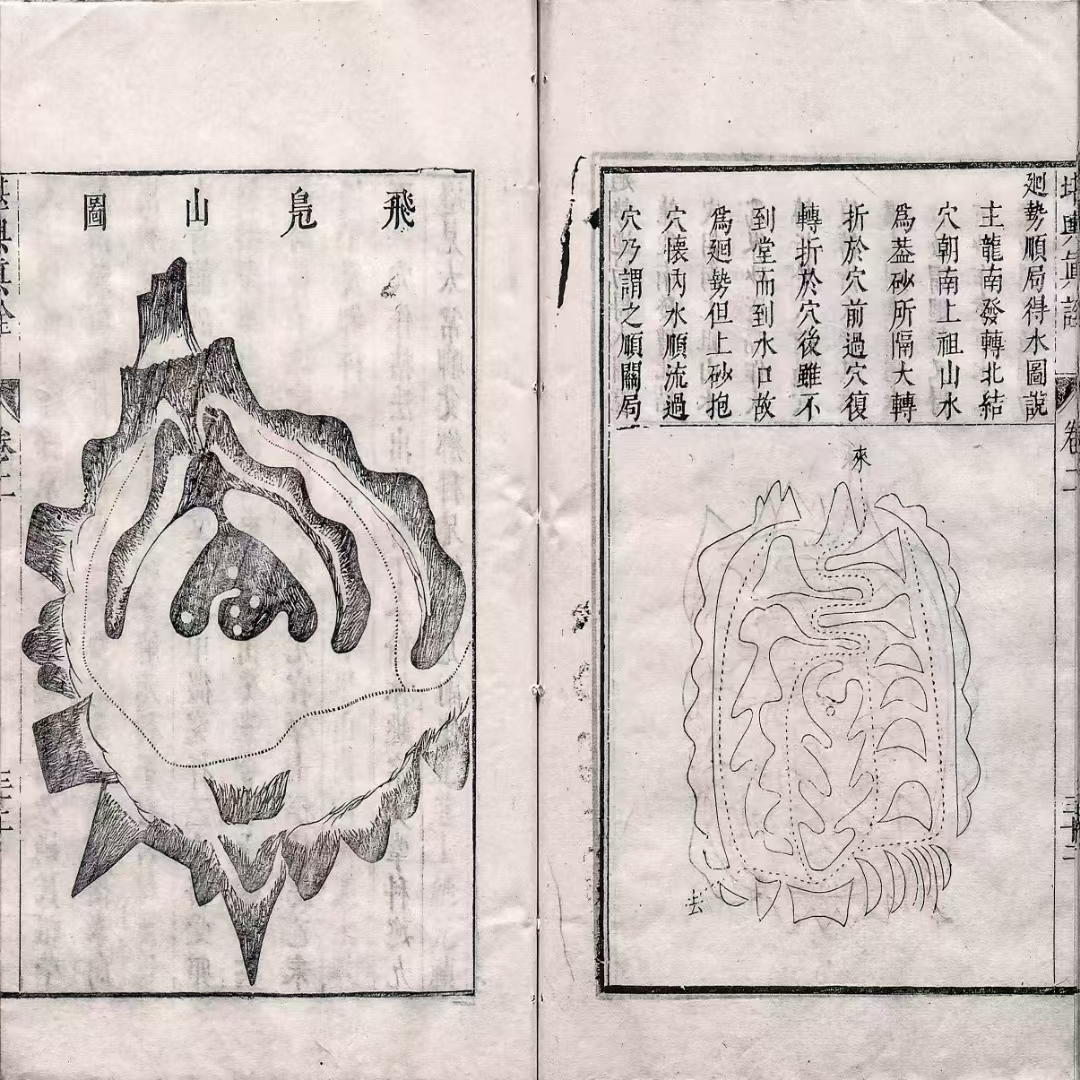 堪輿眞詮
卷二
廻勢順局得水圖說
主龍南發轉北結
穴朝南上祖山水
爲葢砂所隔大轉
折於穴前過穴復
轉折於穴後雖不
到堂而到水口故
爲廻勢但上砂抱
穴懷内水順流過
穴乃謂之順關局
來
去
飛鳧山圖
堪輿眞詮
卷二